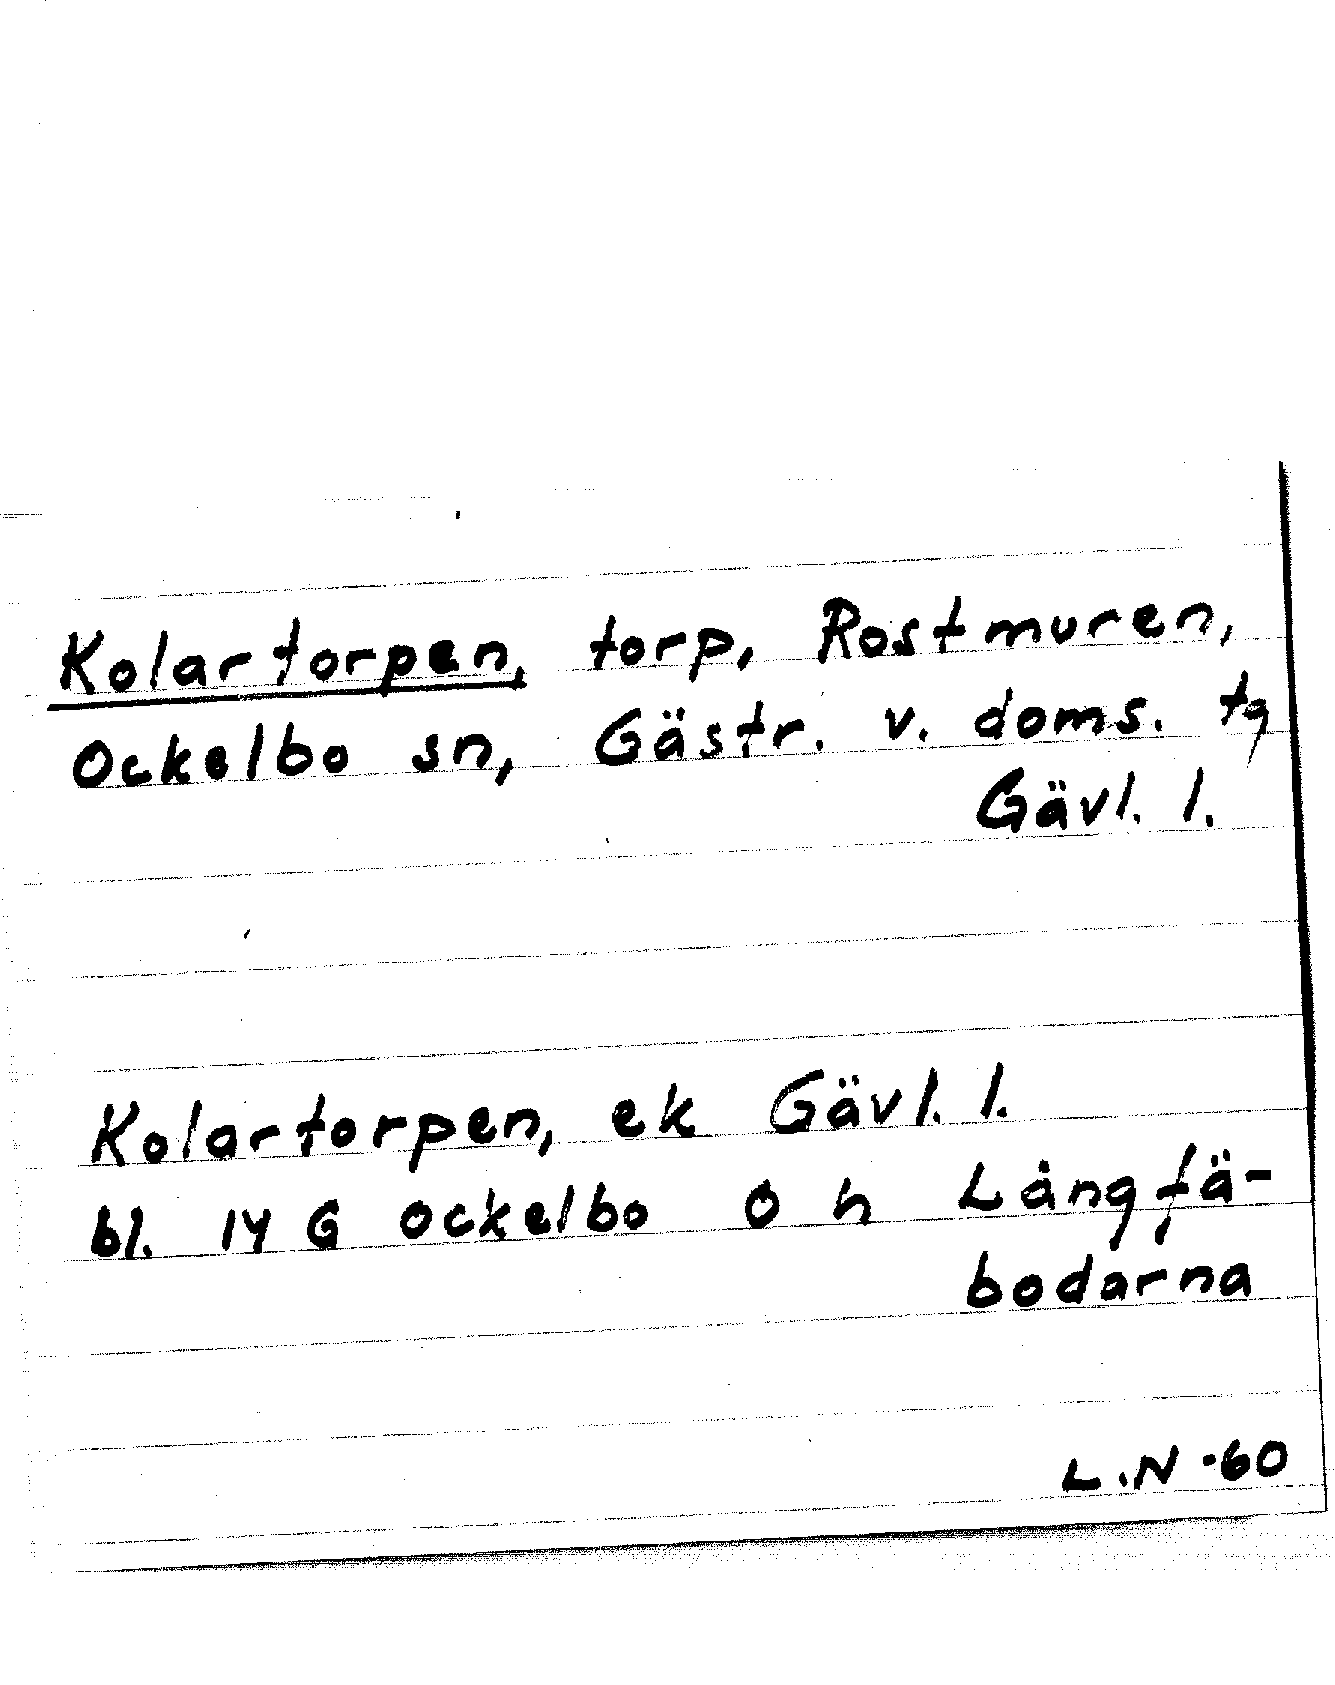 Kolartorpen, torp, Rostmuren,
Ockelbo sn, Gästr. v. doms. tg
Gävl. l.
Kolartorpen, ek Gävl. l.
bl. 14 G Ockelbo O h Långfä-
bodarna
L.N -60